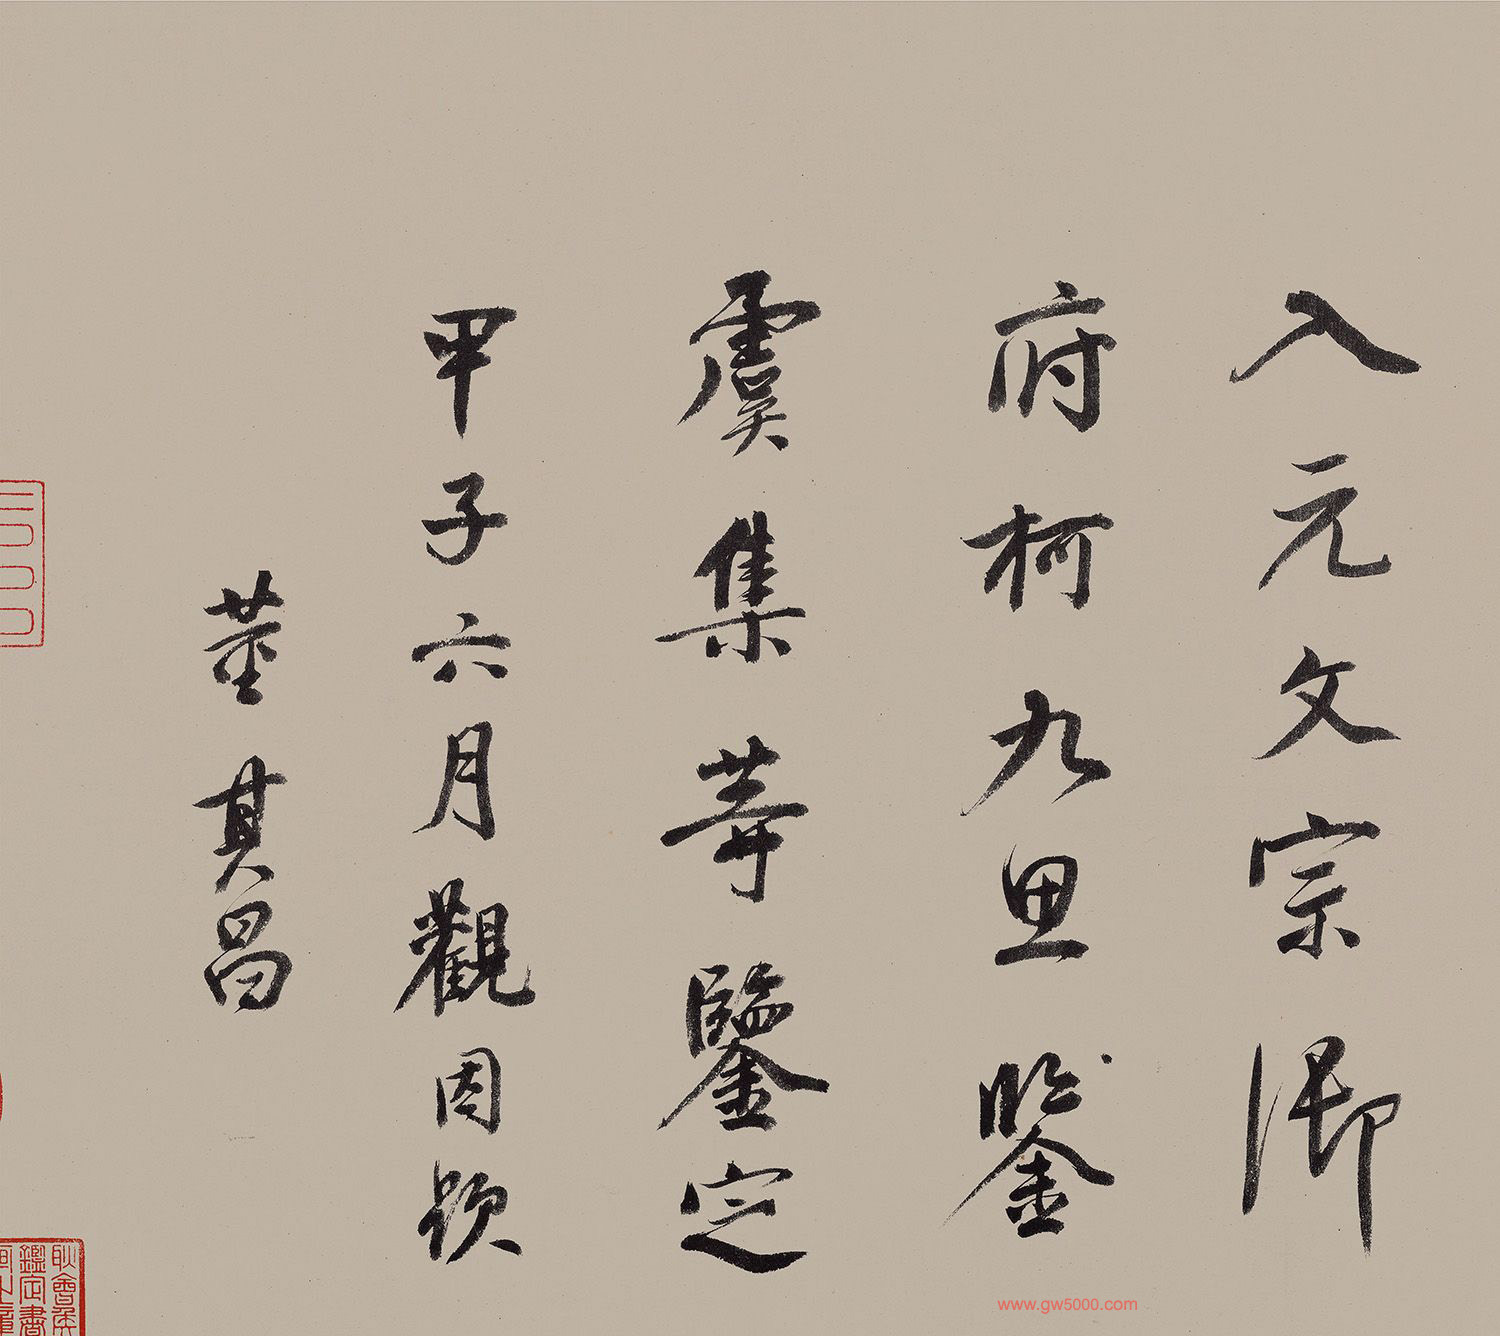 入元文宗御
府柯九思鑒
虞集等鑒定
甲子六月觀因題
董其昌
耿會侯
鑑定書
www.gw5000.com